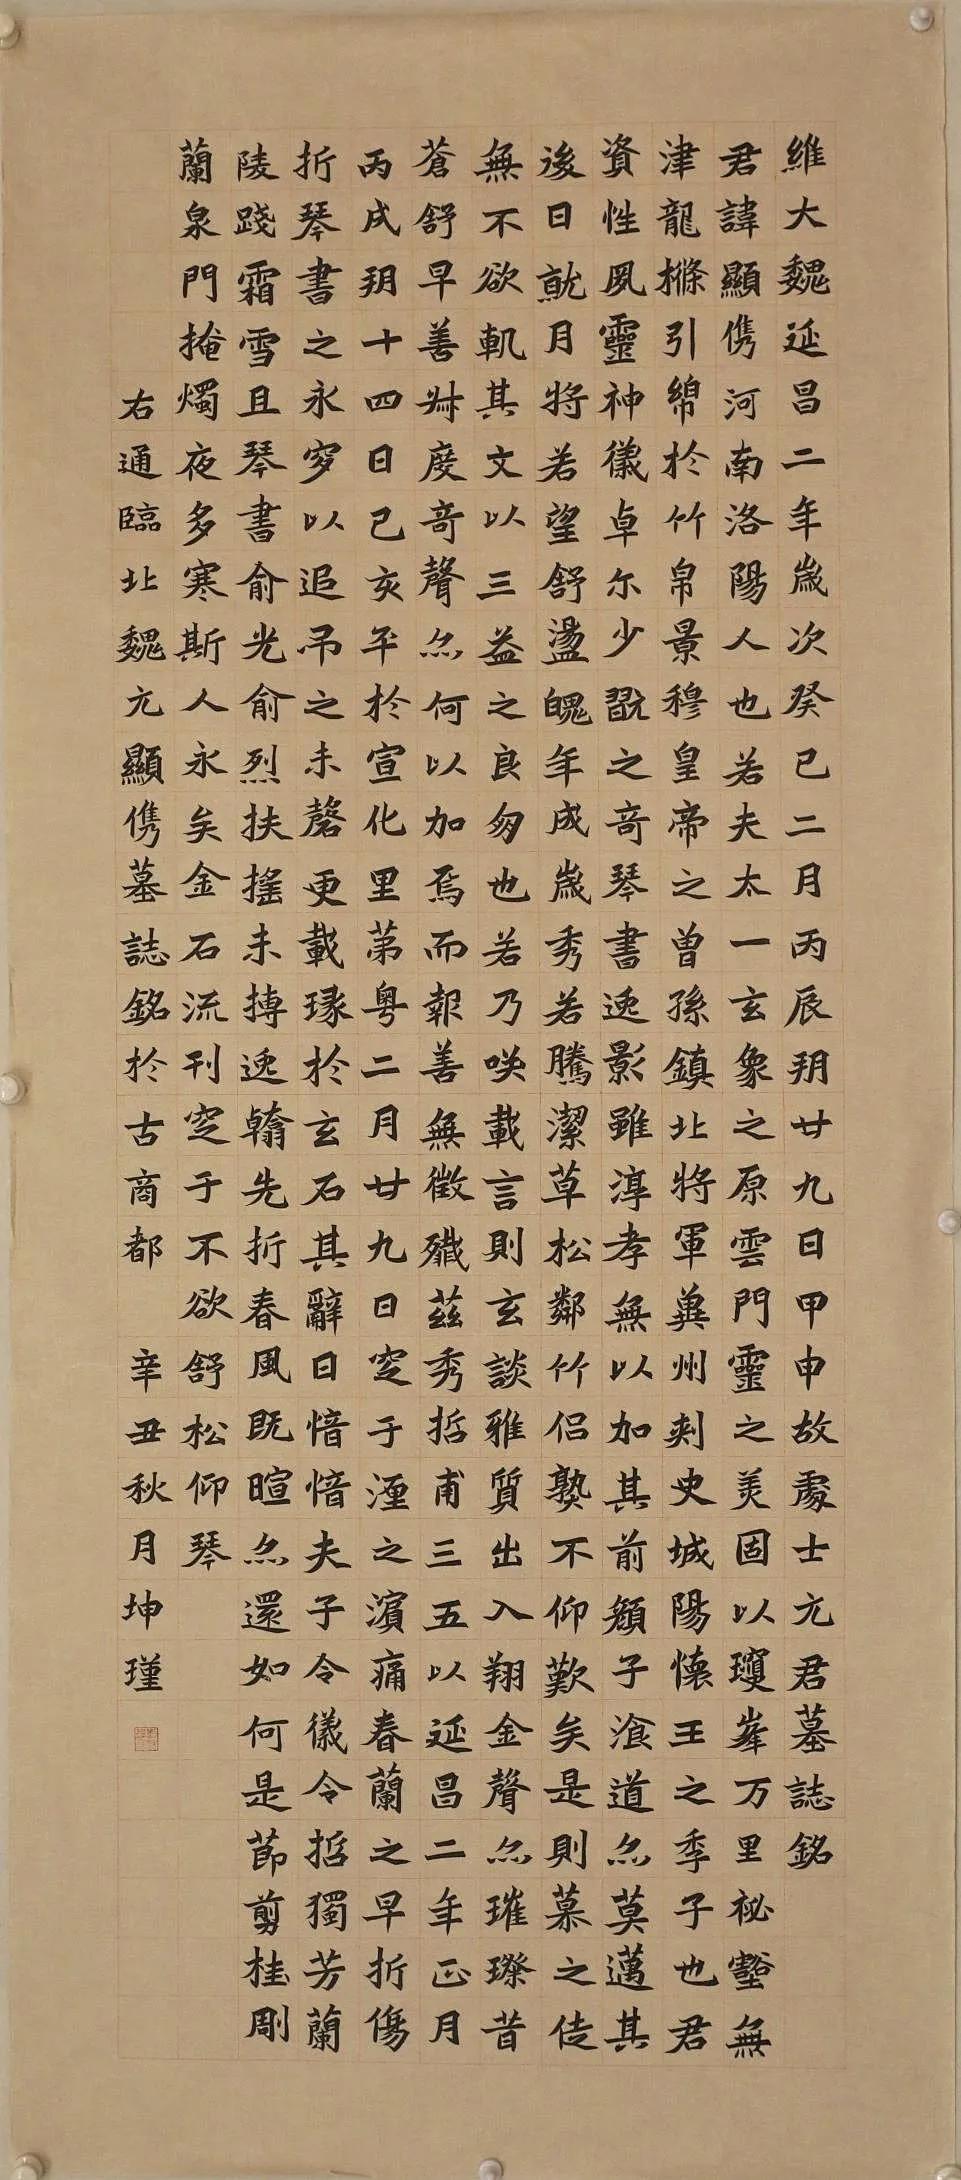 維大魏延昌二年歲次癸巳二月丙辰朔廿九日甲申故處士元君墓誌銘
君諱顯儁河南洛陽人也若夫太一玄象之原雲門靈之美固以瓊峯万里祕壑無
津龍樤引綿於竹帛景穆皇帝之曾孫鎮北將軍冀州刾史城陽懷王之季子也君
資性夙靈神儀卓尔少翫之奇琴書逸影雖淳孝無以加其前顏子湌道亦莫邁其
後日就月將若望舒盪魄年成歲秀若騰潔草松鄰竹侶熟不仰歎矣是則慕之徒
無不欲軌其文以三益之良匆也若乃咲載言則玄談雅質出入翔金聲亦璀璨昔
蒼舒早善舛度奇聲亦何以加焉而報善無徵殲茲秀哲甫三五以延昌二年正月
丙戌朔十四日己亥卒於宣化里第粤二月廿九日窆于湹之濵痛春蘭之早折傷
折琴書之永穸以追吊之未磬更載瑑於玄石其辭曰愔愔夫子令儀令哲獨芳蘭
陵踐霜雪且琴書俞光俞烈扶搖未摶逸翰先折春風既暄亦還如何是節剪桂剮
蘭泉門掩燭夜多寒斯人永矣金石流刊窆于不欲舒松仰琴
右通臨北魏元顯儁墓誌銘於古商都 辛丑秋月坤瑾